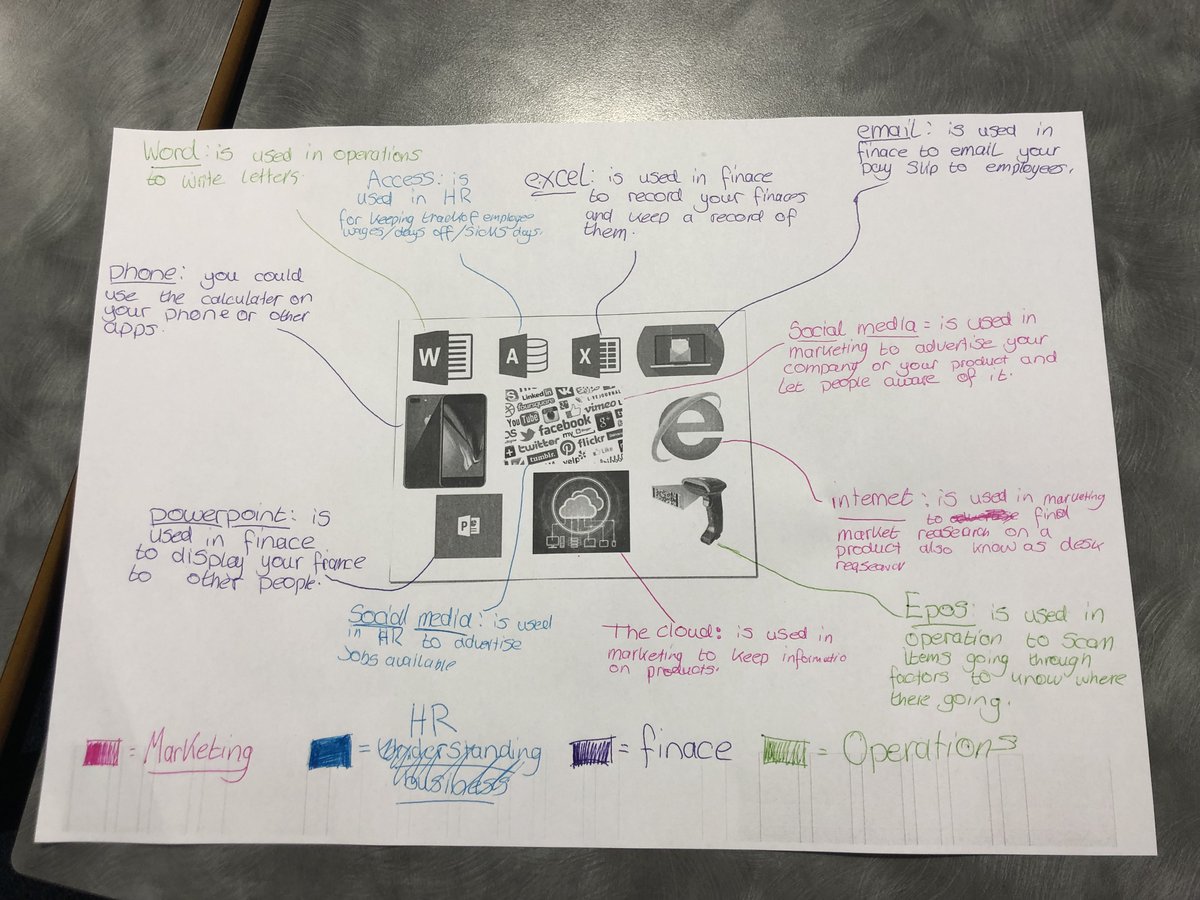 Word: is used in operations
to write letters.
Access: is
used in HR
for keeping track of employee
wages/days off/sicks days.
excel: is used in finace
to record your finaces
and keep a record of
them.
email: is used in
finace to email your
pay slip to employees.
phone: you could
use the calculater on
your phone or other
apps.
Social media = is used in
marketing to advertise your
company or your product and
let people aware of it.
W
A
X
LinkedIn
foursquare
You Tube
vimeo
facebook
twitter
flickr
tumblr.
yelp
Like
e
internet: is used in marketing
to find
market reasearch on a
product also know as desk
reasearch
powerpoint: is
used in finace
to display your finance
to other people.
Social media: is used
in HR to advertise
jobs available
The cloud: is used in
marketing to keep informatio
on products.
Epos: is used in
operation to scan
items going through
factors to know where
there going.
= Marketing
HR
= Understanding
business
= finace
= Operations